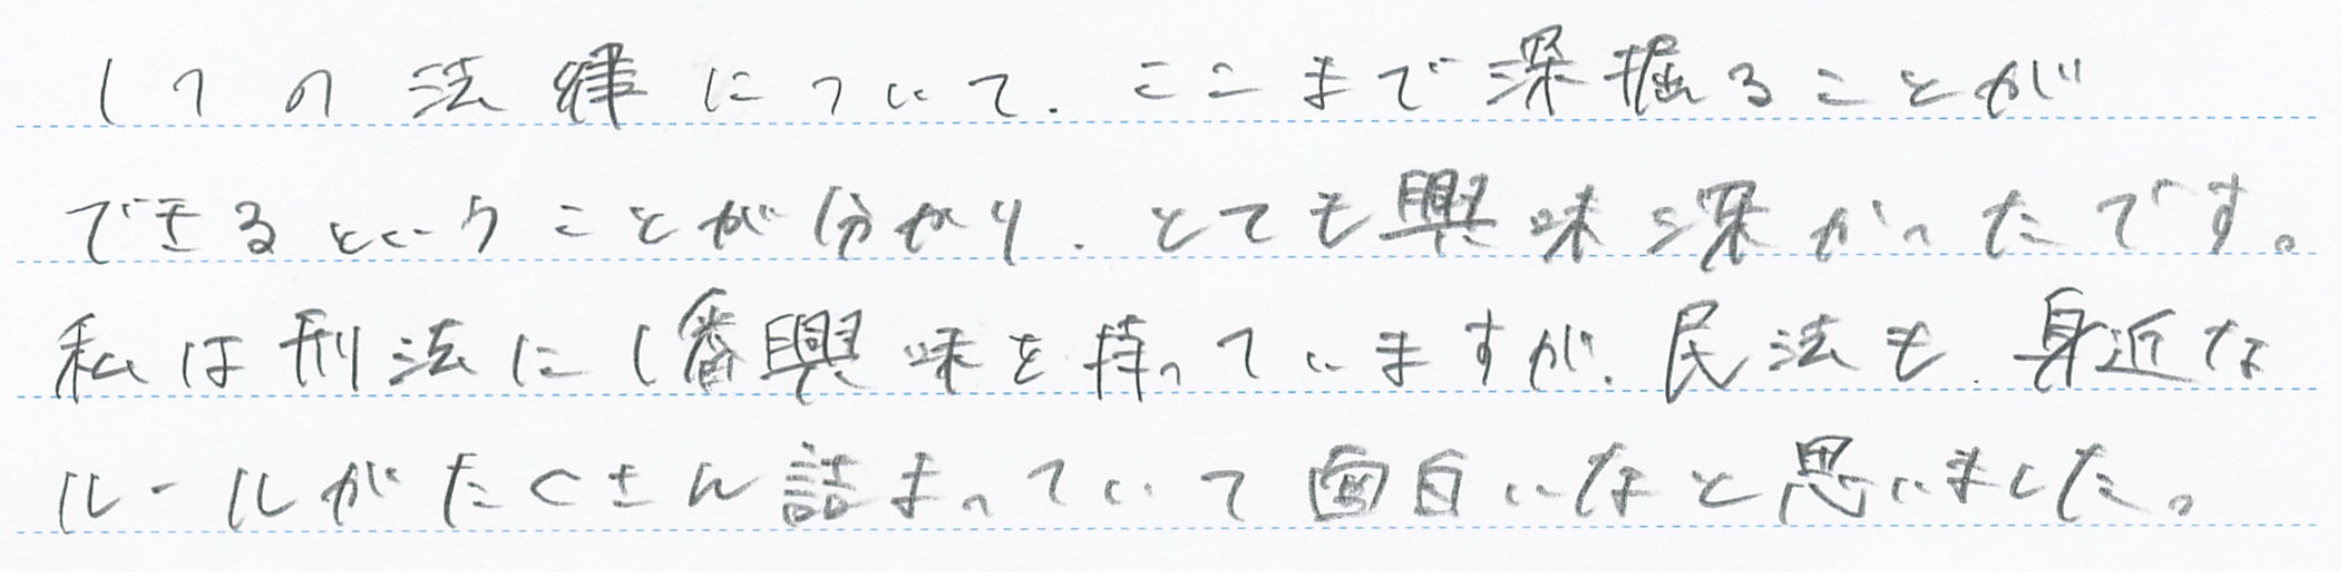 1つの法律について、ここまで深掘ることが
できるということが分かり、とても興味深かったです。
私は刑法に1番興味を持っていますが、民法も、身近な
ルールがたくさん詰まっていて面白いなと思いました。